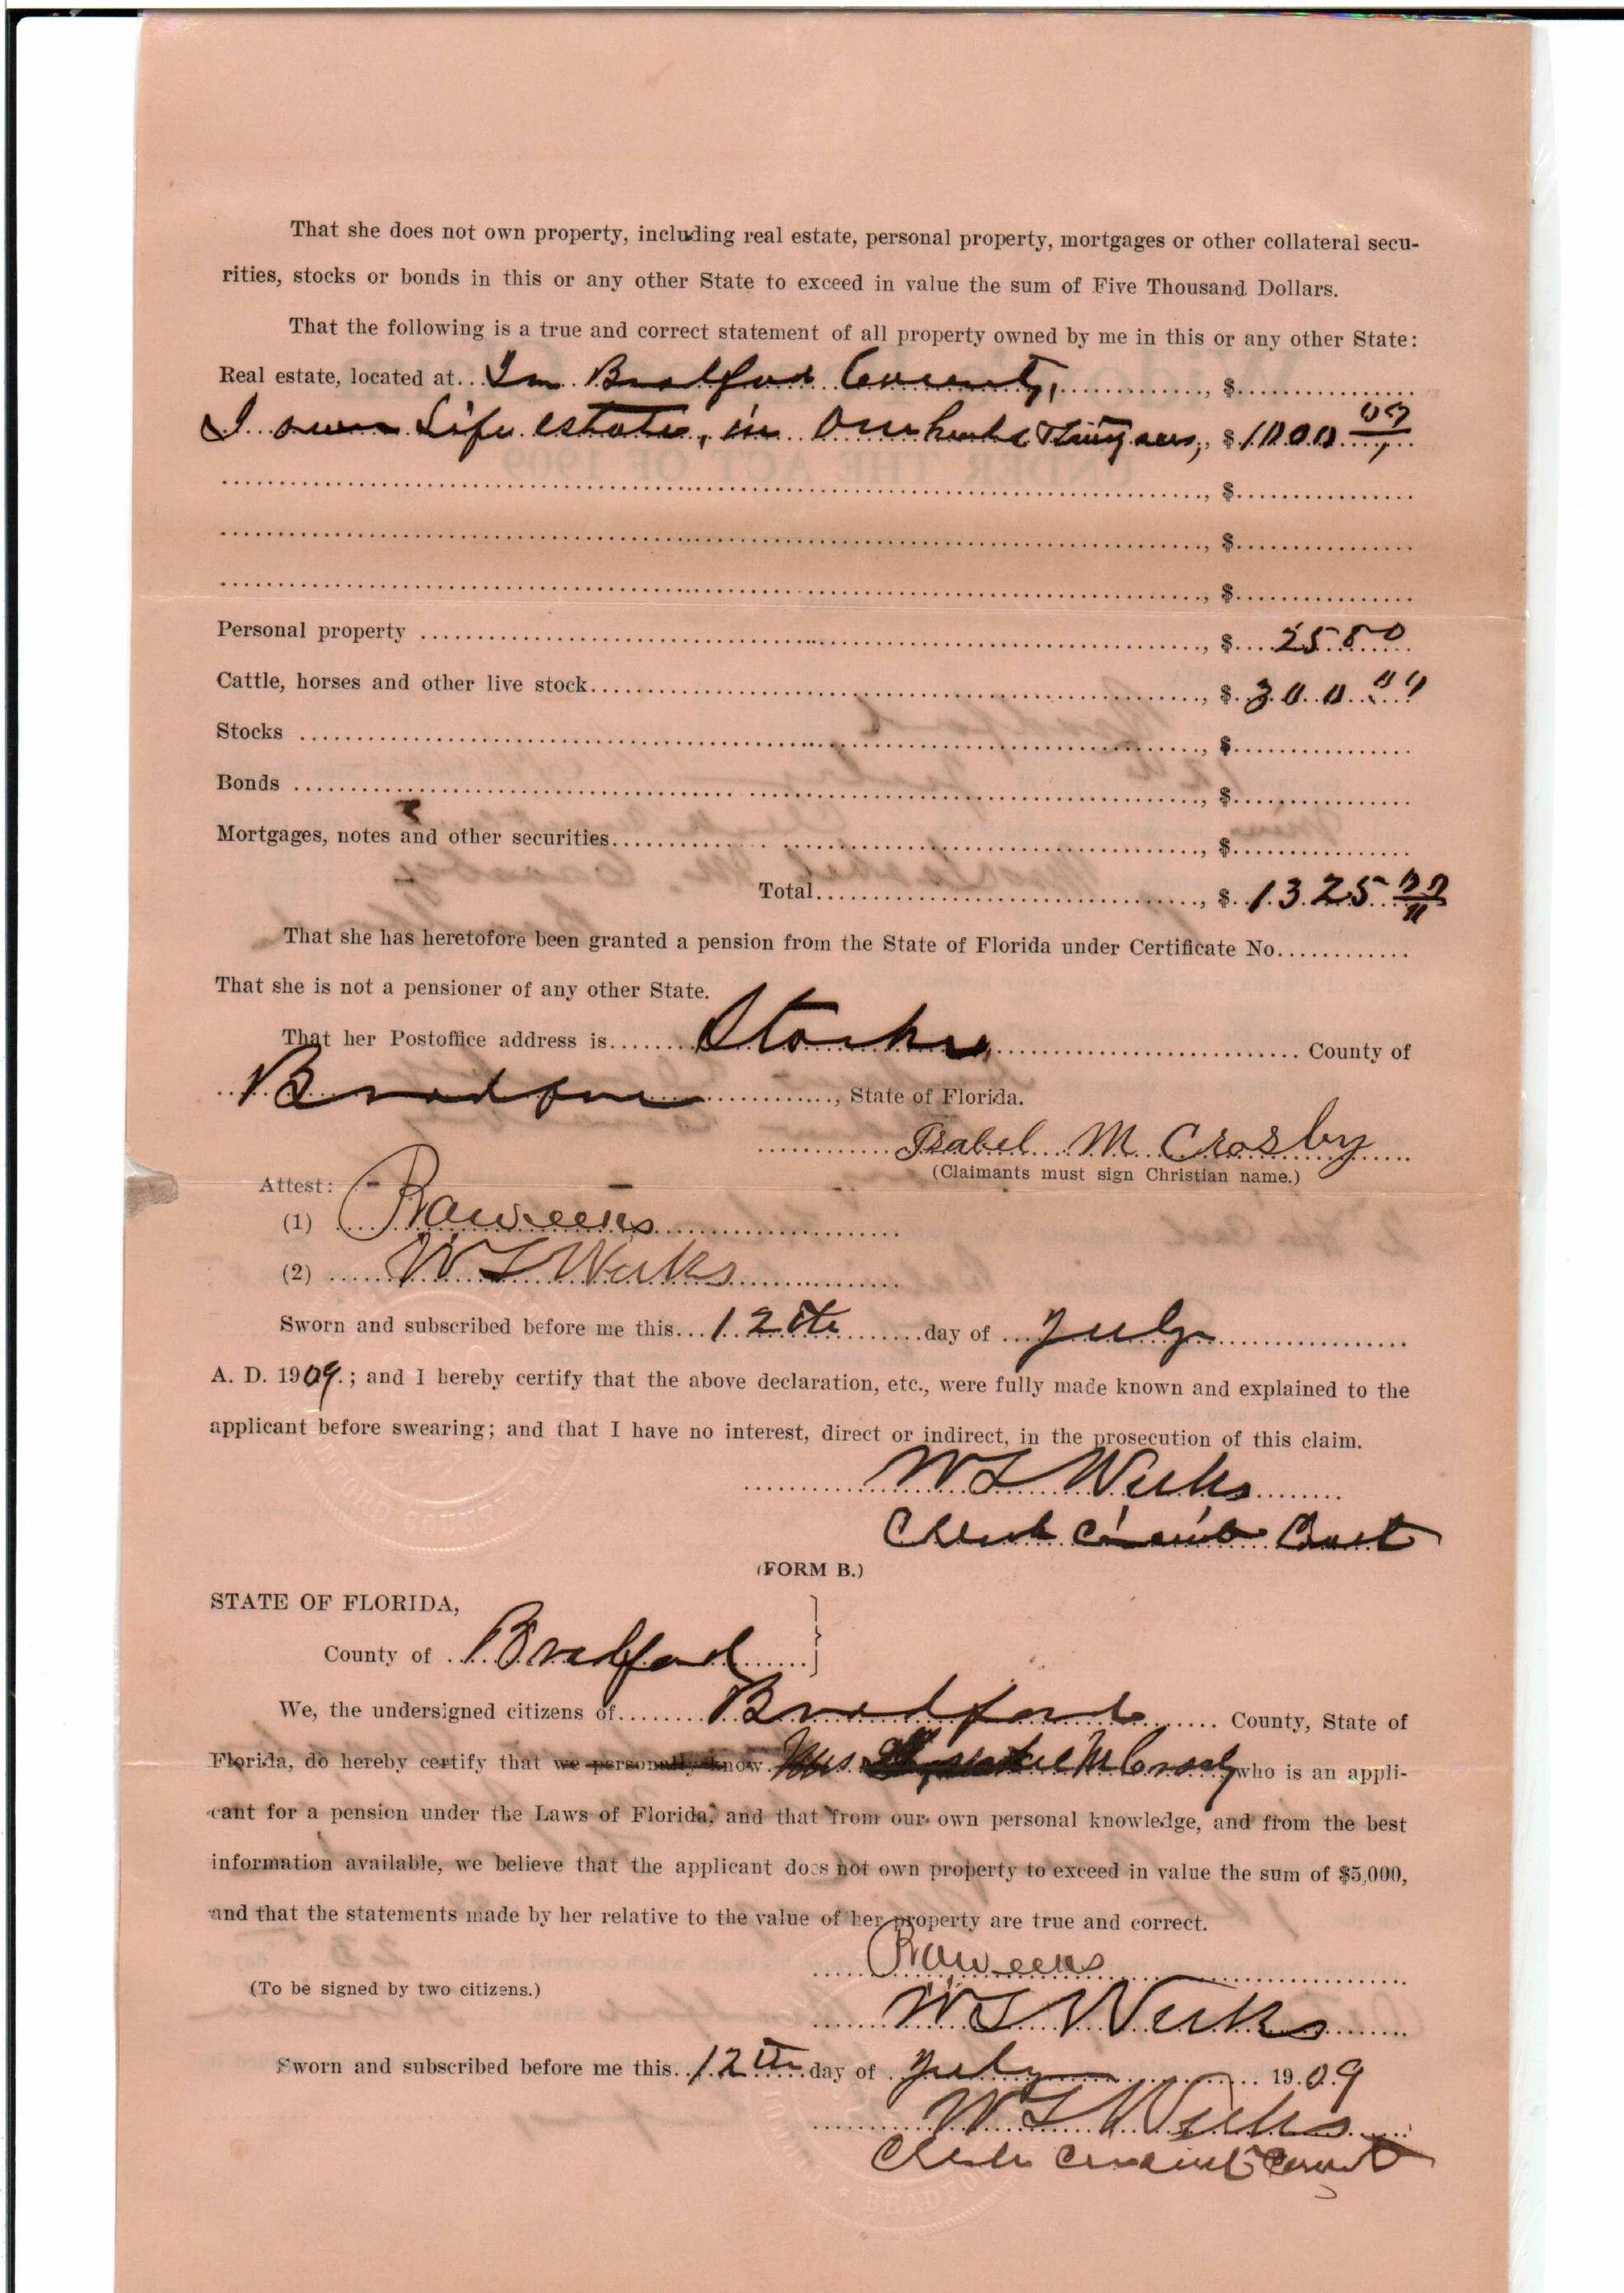 That she does not own property, including real estate, personal property, mortgages or other collateral secu-
rities, stocks or bonds in this or any other State to exceed in value the sum of Five Thousand Dollars.
That the following is a true and correct statement of all property owned by me in this or any other State:
Real estate, located at In Bradford County, , $
I own Life estate, in One hund Thirty acres, , $ 1000 00
, $
, $
, $
Personal property , $ 25 00
Cattle, horses and other live stock , $ 300 00
Stocks , $
Bonds , $
Mortgages, notes and other securities , $
Total , $ 1325
That she has heretofore been granted a pension from the State of Florida under Certificate No.
That she is not a pensioner of any other State.
That her Postoffice address is Starke County of
Bradford , State of Florida.
Isabel M Crosby
(Claimants must sign Christian name.)
Attest:
(1) R A Weeks
(2) W L Weeks
Sworn and subscribed before me this 12th day of July
A. D. 1909.; and I hereby certify that the above declaration, etc., were fully made known and explained to the
applicant before swearing; and that I have no interest, direct or indirect, in the prosecution of this claim.
W L Weeks
Clerk Circuit Court
(FORM B.)
STATE OF FLORIDA,
County of Bradford
We, the undersigned citizens of Bradford County, State of
Florida, do hereby certify that we personally know Mrs M Crosby who is an appli-
cant for a pension under the Laws of Florida, and that from our own personal knowledge, and from the best
information available, we believe that the applicant does not own property to exceed in value the sum of $5,000,
and that the statements made by her relative to the value of her property are true and correct.
R A Weeks
(To be signed by two citizens.)
W L Weeks
Sworn and subscribed before me this 12th day of July 1909
W L Weeks
Clerk Circuit Court